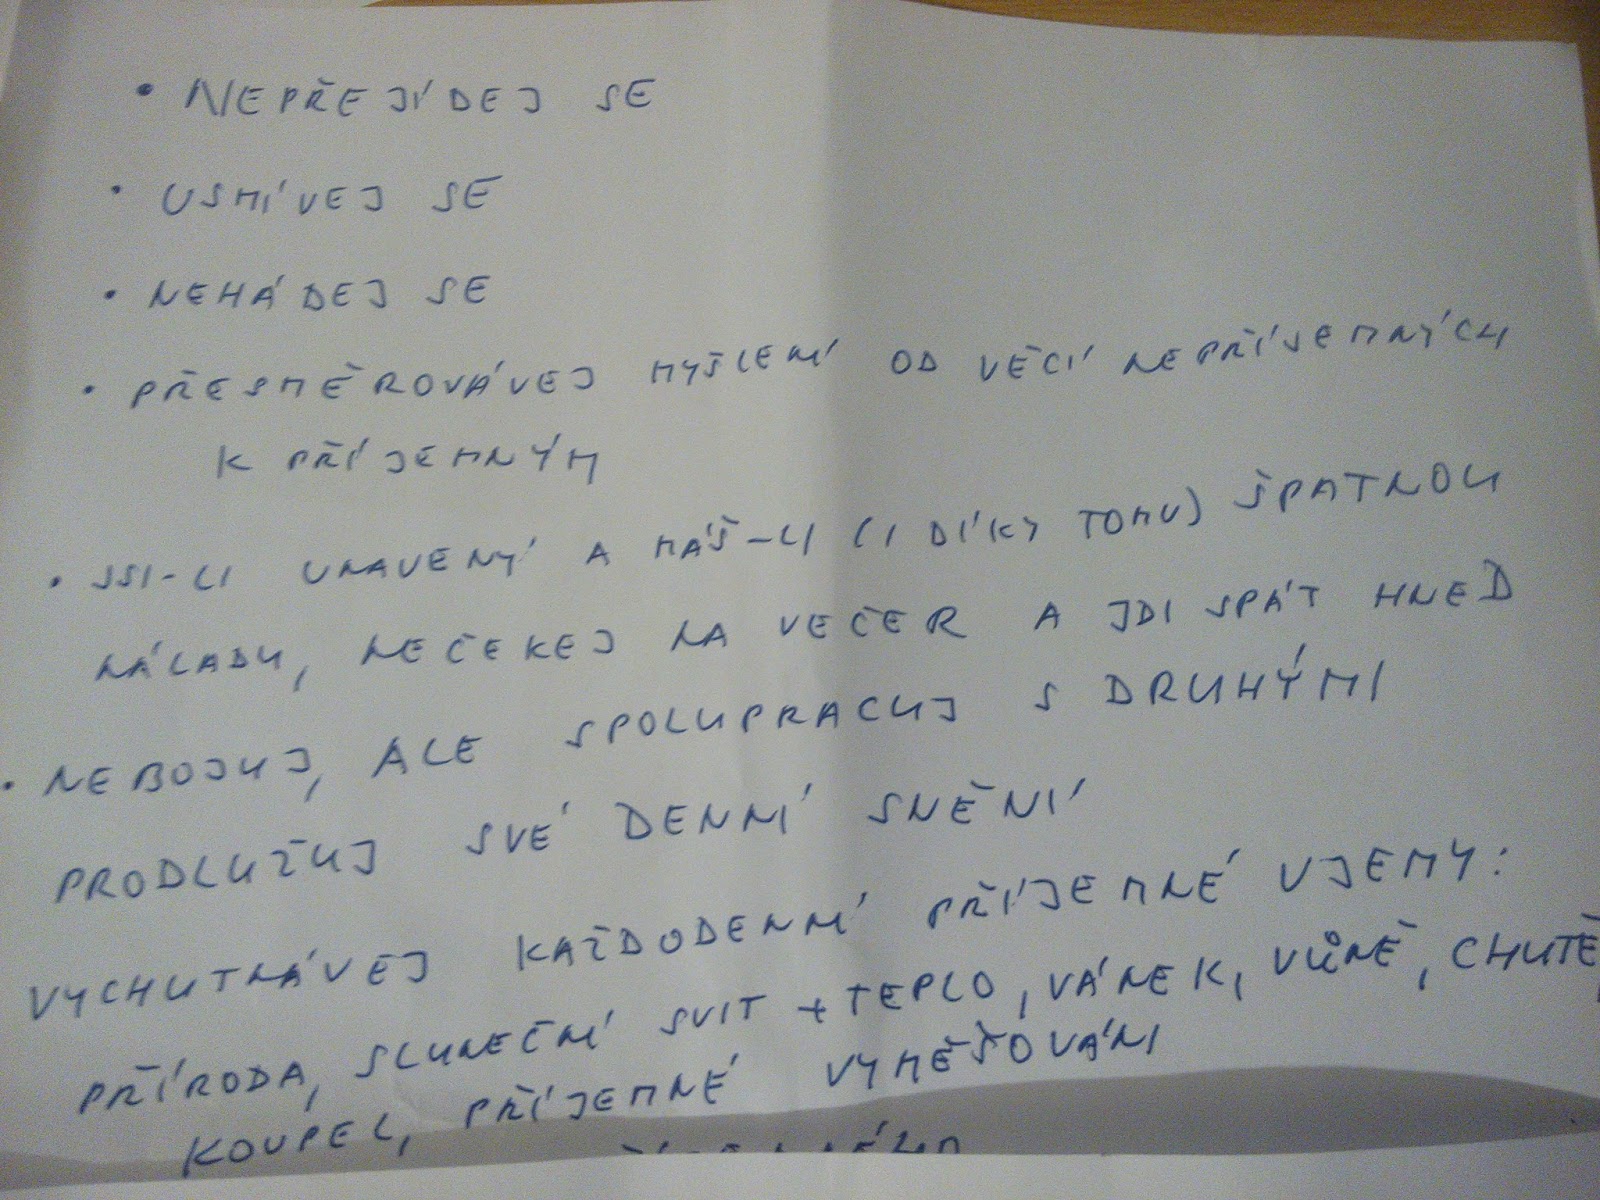 • NEPŘEJÍDEJ SE
• USMÍVEJ SE
• NEHÁDEJ SE
• PŘESMĚROVÁVEJ MYŠLENÍ OD VĚCÍ NEPŘÍJEMNÝCH
K PŘÍJEMNÝM
• JSI-LI UNAVENÝ A MÁŠ-LI (I DÍKY TOMU) ŠPATNOU
NÁLADU, NEČEKEJ NA VEČER A JDI SPÁT HNED
• NEBOJUJ, ALE SPOLUPRACUJ S DRUHÝMI
PRODLUŽUJ SVÉ DENNÍ SNĚNÍ
VYCHUTNÁVEJ KAŽDODENNÍ PŘÍJEMNÉ VJEMY:
PŘÍRODA, SLUNEČNÍ SVIT + TEPLO, VÁNEK, VŮNĚ, CHUTĚ,
KOUPEL, PŘÍJEMNÉ VYMĚŠOVÁNI